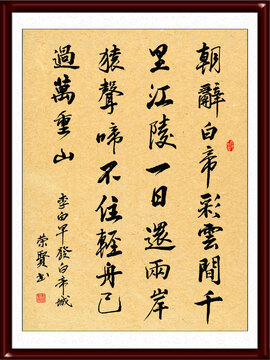 朝辭白帝彩雲間千
里江陵一日還兩岸
猿聲啼不住輕舟已
過萬重山
李白早發白帝城
荣賢书